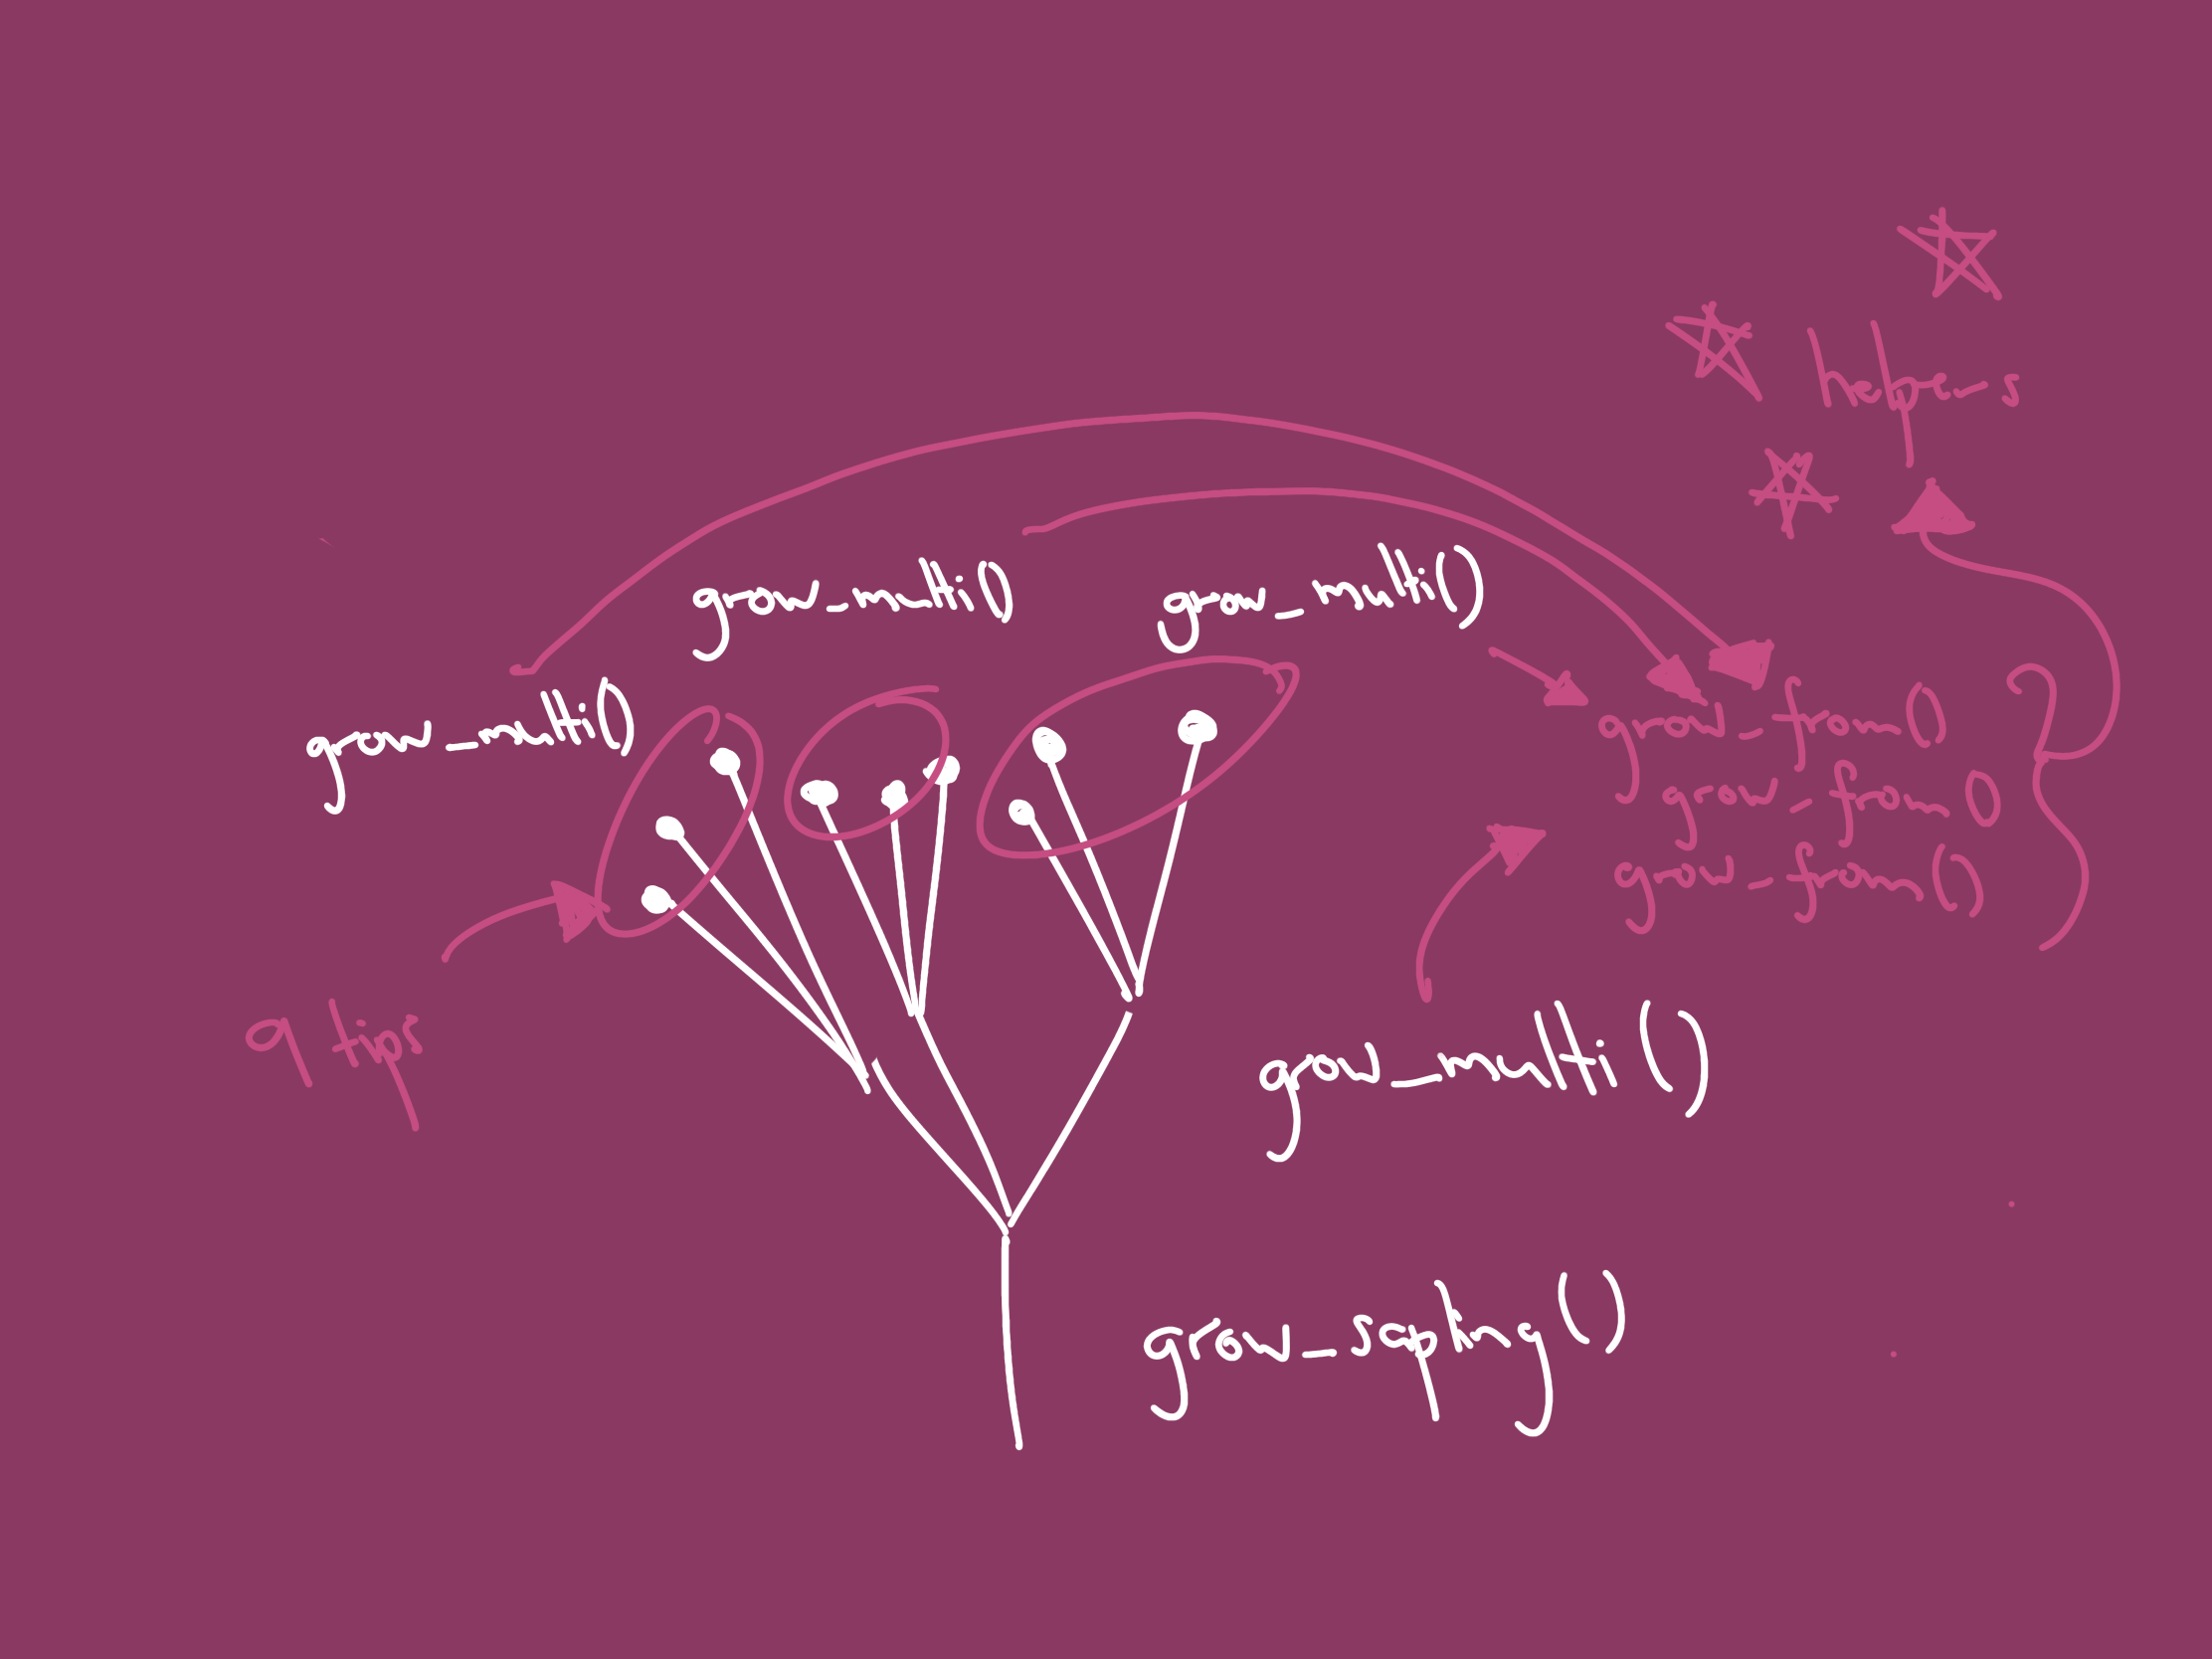 helpers
grow_multi()
grow_multi()
grow_multi()
grow_from()
grow_from()
grow_from()
9 tips
grow_multi()
grow_sapling()